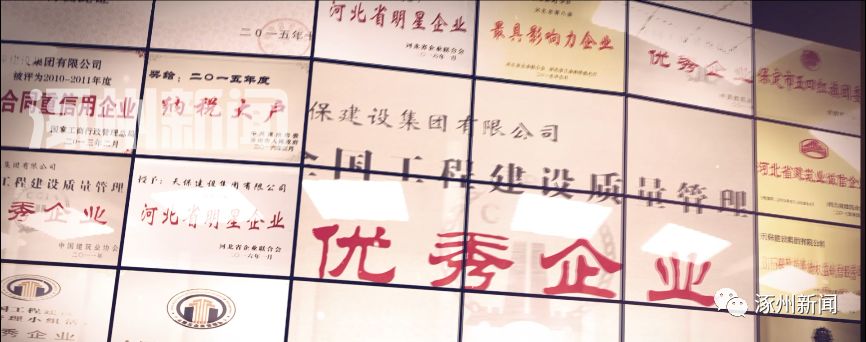 二〇一五年十
河北省明星企业
河北省企业联合会
二〇一六年一月
最具影响力企业
优秀企业
保定市五四红旗团委
建设集团有限公司
被评为2010-2011年度
合同重信用企业
国家工商行政管理总局
二〇一三年二月
奖给：二〇一五年度
纳税大户
涿州新闻
保建设集团有限公司
全国工程建设质量管理
优秀企业
河北省建筑业诚信企业
集团有限公司
工程建设质量管理
秀企业
中国建筑业协会
二〇一一年
授予：天保建设集团有限公司
河北省明星企业
河北省企业联合会
二〇一六年一月
天保建设集团有限公司
国工程建
管理小组活
秀企业
涿州新闻